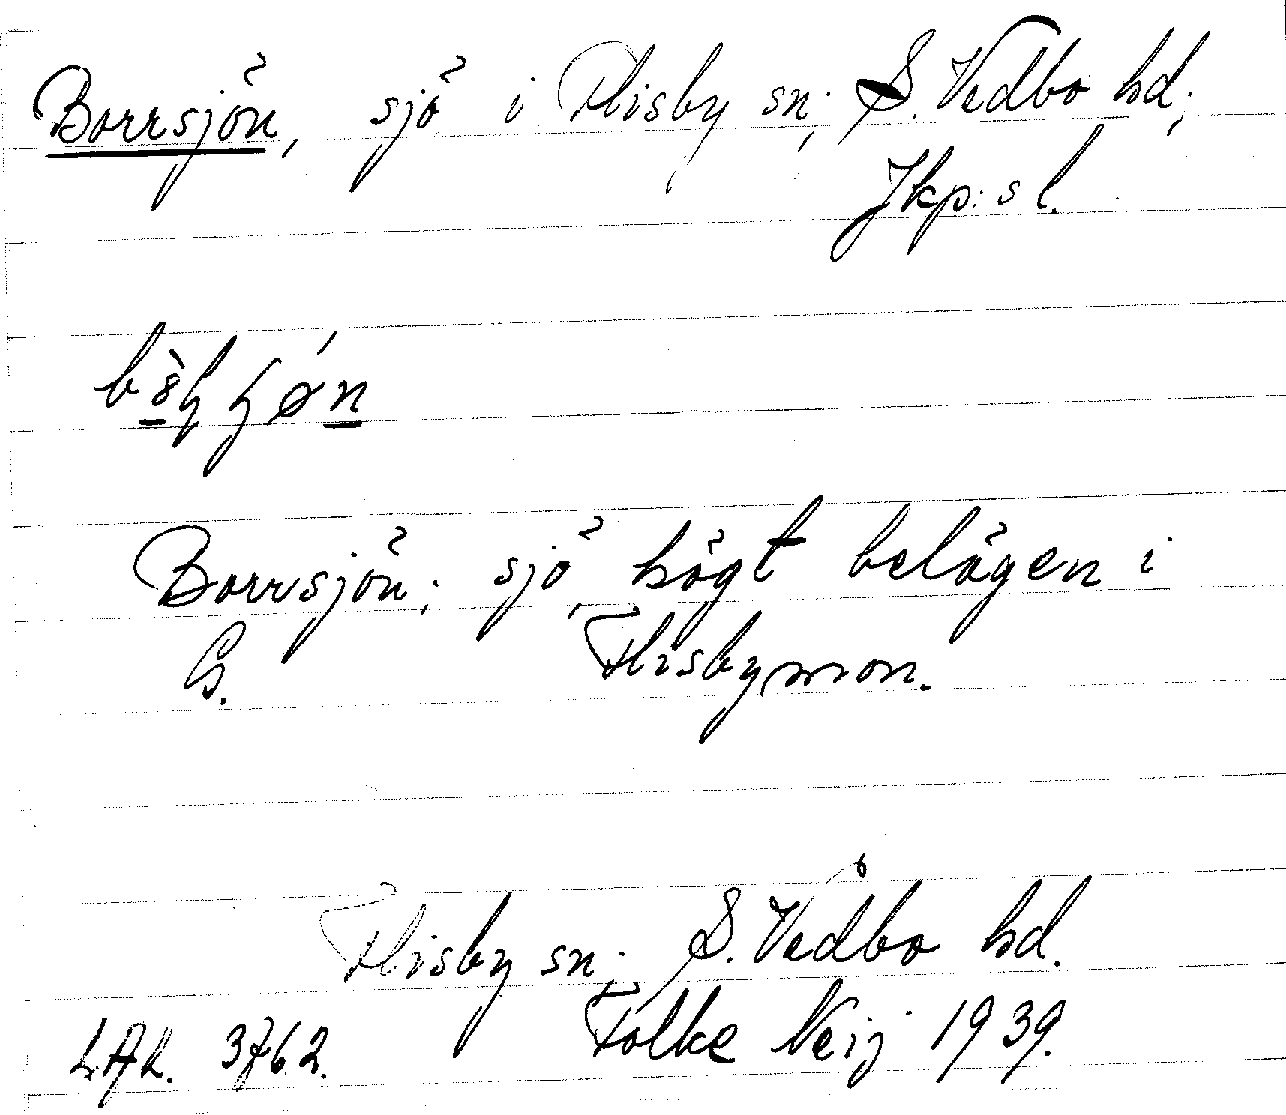 Borrsjön, sjö i Flisby sn; S. Vedbo hd;
Jkp:s l.
Borrsjön; sjö, högt belägen i
G. Flisbymon.
Flisby sn; S. Vedbo hd.
L.A.L. 3762. Folke Neij 1939.